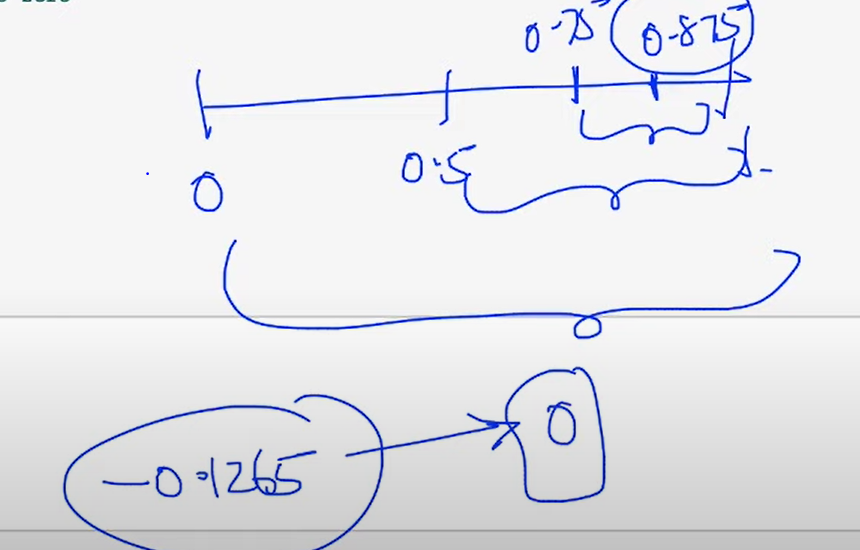 0.75 0.875
0.5 1
0
-0.1265 0